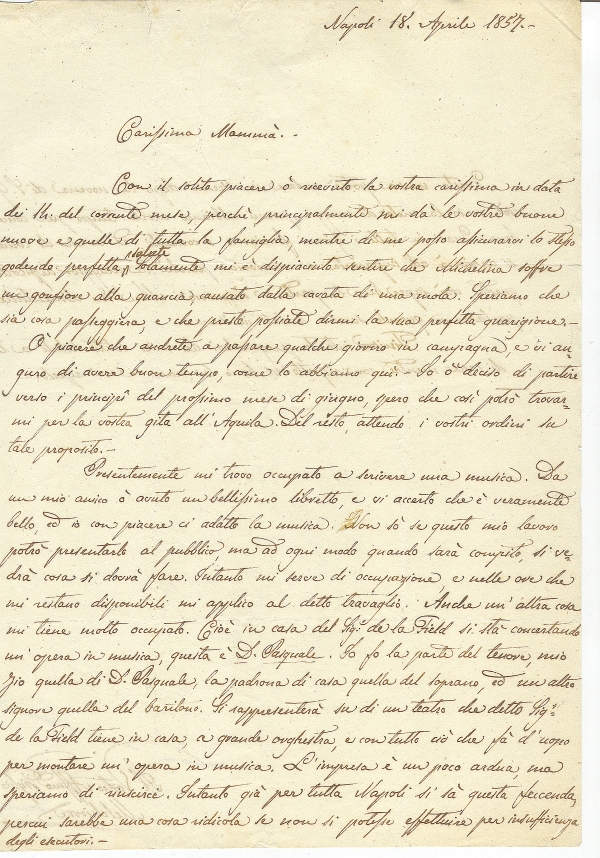 Napoli 18. Aprile 1857.-
Carissima Mammà.-
Con il solito piacere ò ricevuto la vostra carissima in data
dei 14. del corrente mese, perchè principalmente mi dà le vostre buone
nuove e quelle di tutta la famiglia, mentre di me posso assicurarvi lo stesso
godendo perfetta salute, solamente mi è dispiaciuto sentire che Michelina soffre
un gonfiore alla guancia, causato dalla cavata di una mola. Speriamo che
sia cosa passeggiera, e che presto possiate dirmi la sua perfetta guarigione.-
È piacere che andrete a passare qualche giorno in campagna, e vi au-
guro di avere buon tempo, come lo abbiamo quì.- Io ò deciso di partire
verso i principî del prossimo mese di giugno, spero che così potrò trovar-
mi per la vostra gita all'Aquila. Del resto, attendo i vostri ordini su
tale proposito.-
Presentemente mi trovo occupato a scrivere una musica. Da
un mio amico ò avuto un bellissimo libretto, e vi accerto che è veramente
bello, ed io con piacere ci adatto la musica. Non sò se questo mio lavoro
potrò presentarlo al pubblico, ma ad ogni modo quando sarà compito, si ve-
drà cosa si dovrà fare. Intanto mi serve di occupazione, e nelle ore che
mi restano disponibili mi applico al detto travaglio. Anche un'altra cosa
mi tiene molto occupato. Cioè in casa del Sig.r de la Field si stà concertando
un'opera in musica, questa è D. Pasquale. Io fo la parte del tenore, mio
Zio quella di D. Pasquale, la padrona di casa quella del soprano, ed un altro
signore quella del baritono. Si rappresenterà su di un teatro che detto Sig.r
de la Field tiene in casa, a grande orchestra, e con tutto ciò che fà d'uopo
per montare un'opera in musica. L'impresa è un poco ardua, ma
speriamo di riuscirci. Intanto già per tutta Napoli si sà questa faccenda,
percui sarebbe una cosa ridicola se non si potesse effettuire per insufficienza
degli esecutori.-